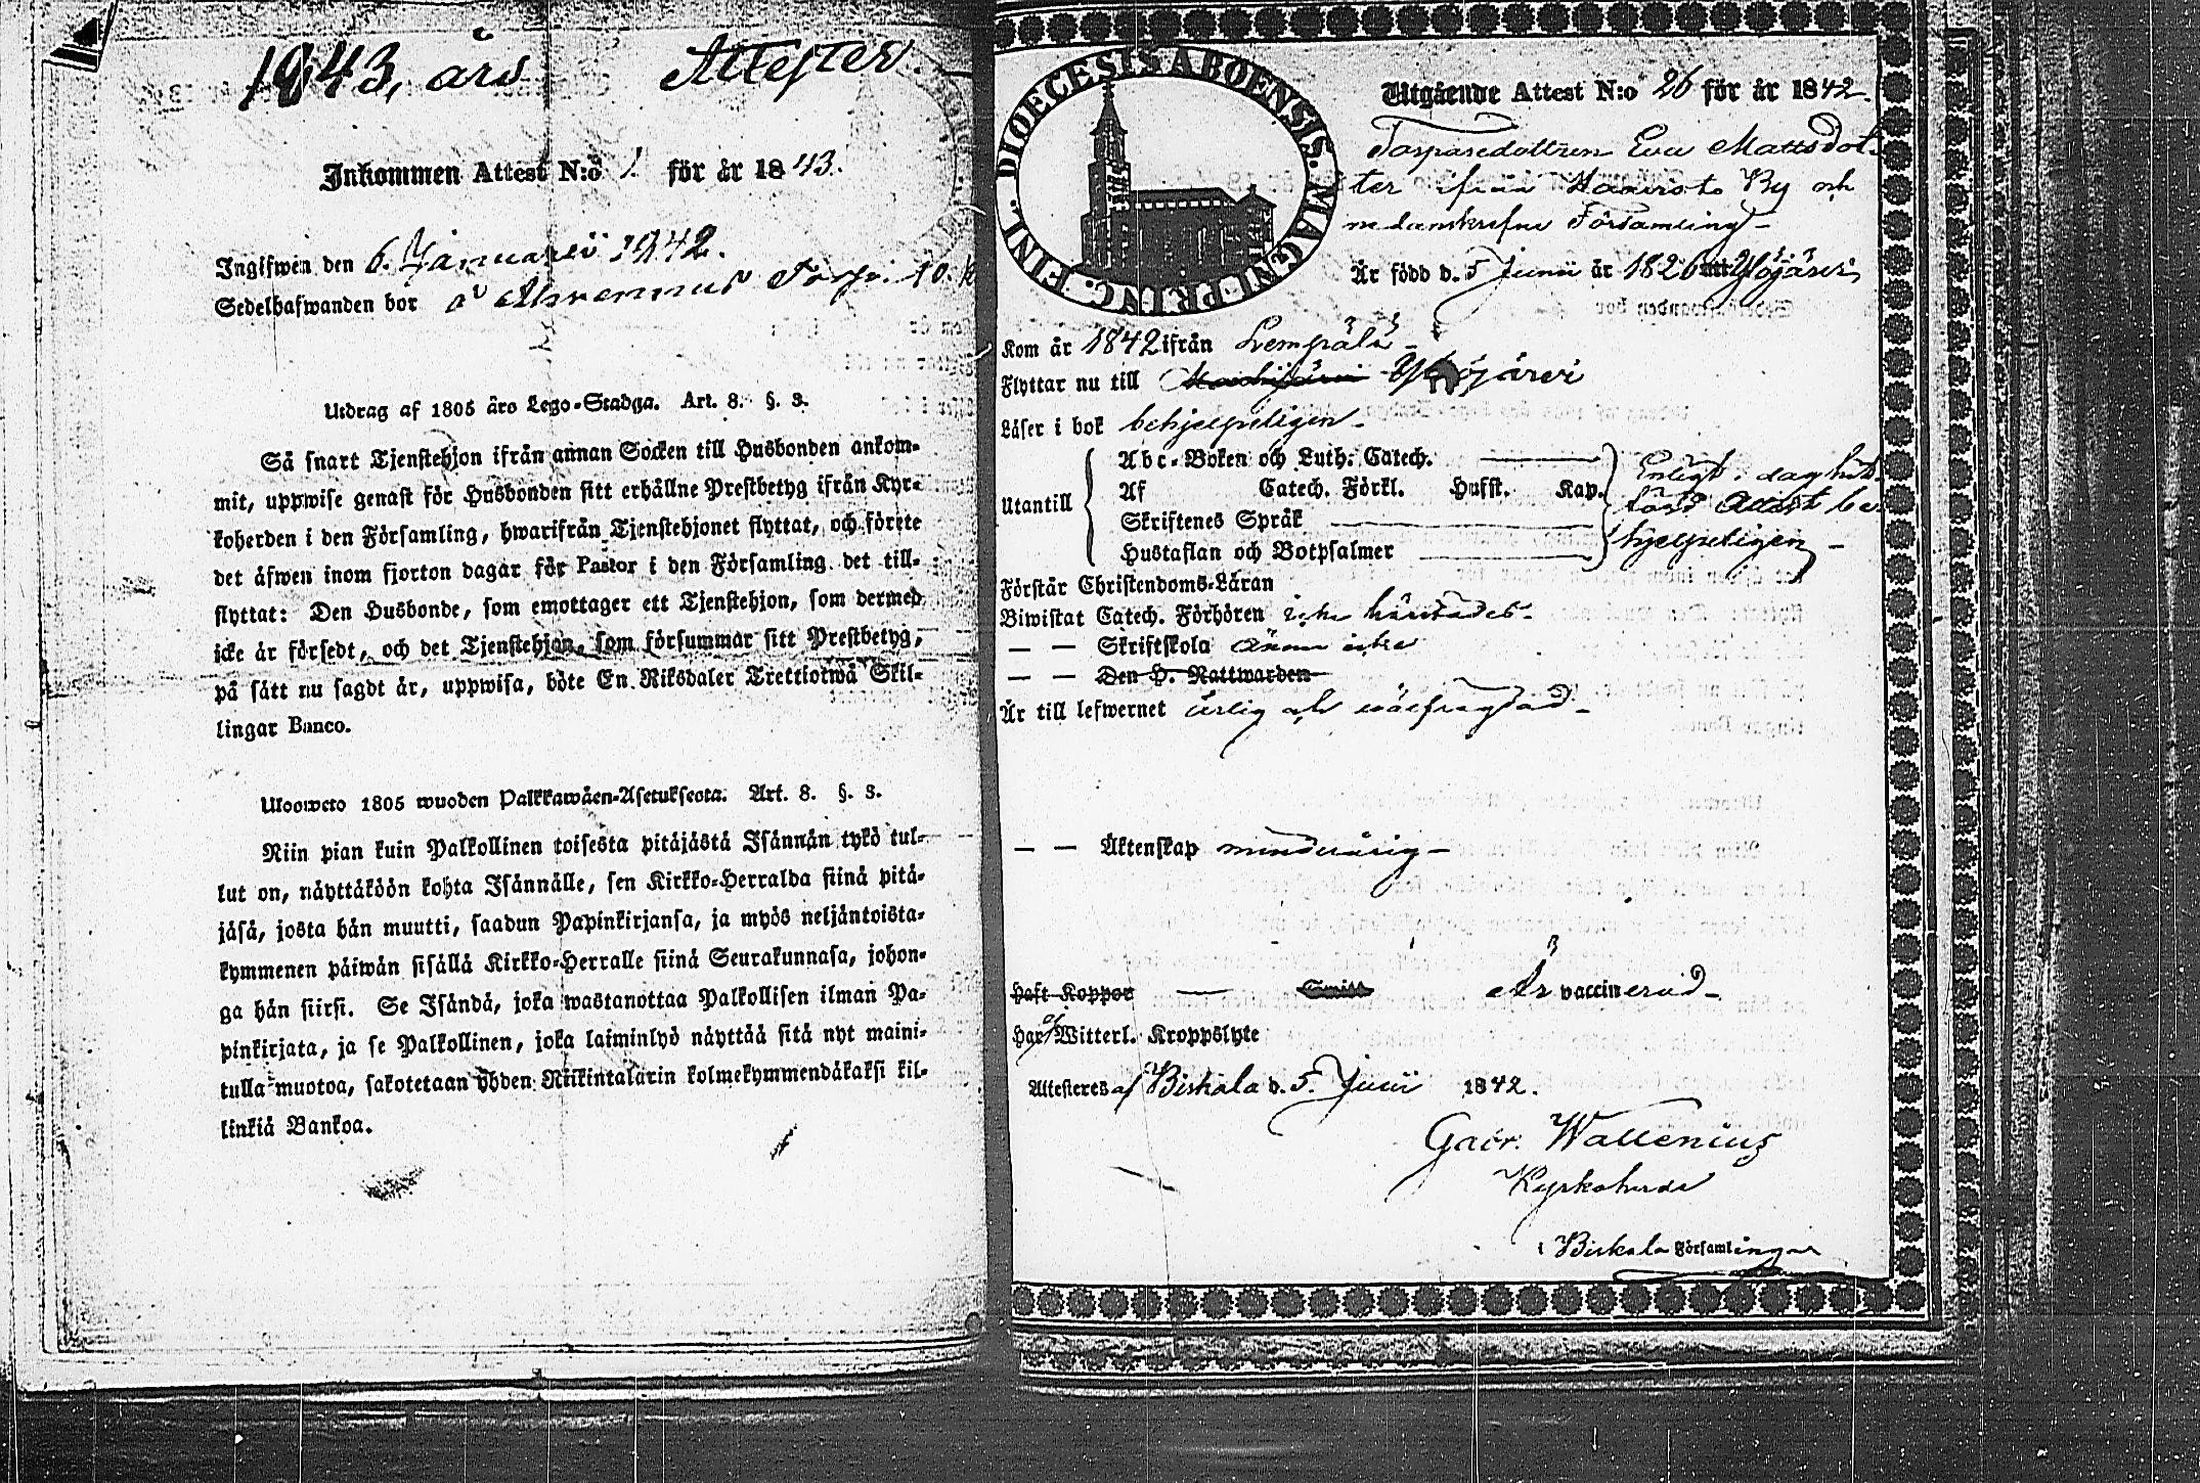 1843, års Attester.
Inkommen Attest N:o 1. för år 1843.
Ingifwen den 6. Januarii 1842.
Sedelhafwanden bor å Torp.
Utdrag af 1805 års Lego-Stadga. Art. 8. §. 3.
Så snart Tjenstehjon ifrån annan Socken till Husbonden ankom-
mit, uppwise genast för Husbonden sitt erhållne Prestbetyg ifrån Kyr-
koherden i den Församling, hwarifrån Tjenstehjonet flyttat, och förete
det äfwen inom fjorton dagar för Pastor i den Församling det till-
flyttat: Den Husbonde, som emottager ett Tjenstehjon, som dermed
icke är försedt, och det Tjenstehjon, som försummar sitt Prestbetyg,
på sätt nu sagdt är, uppwisa, böte En Riksdaler Trettiotwå Skil-
lingar Banco.
Ulosweto 1805 wuoden Palkkawäen-Asetuksesta. Art. 8. §. 3.
Niin pian kuin Palkollinen toisesta pitäjästä Isännän tykö tul-
lut on, näyttäköön kohta Isännälle, sen Kirkko-Herralda siinä pitä-
jäsä, josta hän muutti, saadun Papinkirjansa, ja myös neljäntoista-
kymmenen päiwän sisällä Kirkko-Herralle siinä Seurakunnasa, johon-
ga hän siirsi. Se Isändä, joka wastanottaa Palkollisen ilman Pa-
pinkirjata, ja se Palkollinen, joka laiminlyö näyttää sitä nyt maini-
tulla muotoa, sakotetaan yhden Riikintalarin kolmekymmendäkaksi kil-
linkiä Bankoa.
DIOECESIS ABOENSIS. MAGNI PRINC. FINL.
Utgående Attest N:o 26 för år 1842.
Torparedottren Eva Mattsdot-
ter ifrån Haavisto By och
nedanskrefne Församling
Är född d. 5 Junii år 1826 uti Ylöjärvi
Kom år 1842 ifrån Lempälä
Flyttar nu till Ylöjärvi
Läser i bok behjelpeligen
Abc-Boken och Luth. Catech.
Utantill Af Catech. Förkl. Husst. Kap.
Skriftenes Språk
Hustaflan och Botpsalmer
Enligt i dag
Attest be-
hjelpeligen
Förstår Christendoms-Läran
Biwistat Catech. Förhören icke
— — Skriftskola ännu icke
— — Den H. Nattwarden
Är till lefwernet ärlig och wälfrägdad
— — Äktenskap minderårig
Haft Koppor — Smitt Är vaccinerad
Har ej Witterl. Kroppslyte
Attesteres af Birkala d. 5. Junii 1842.
Gabr. Wallenius
Kyrkoherde
i Birkala Församlingar